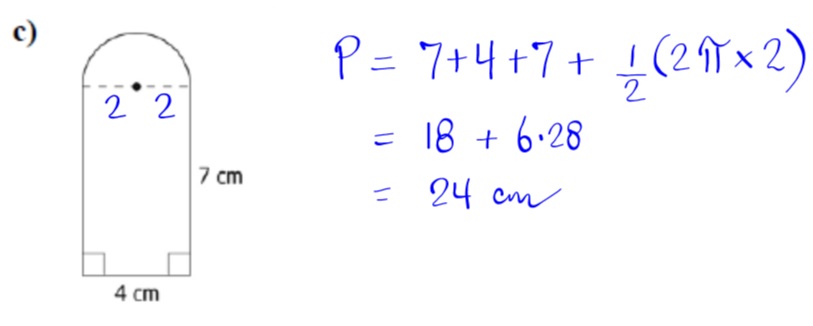 c)
2 2
7 cm
4 cm
P = 7+4+7 + 1/2 (2π×2)
= 18 + 6·28
= 24 cm